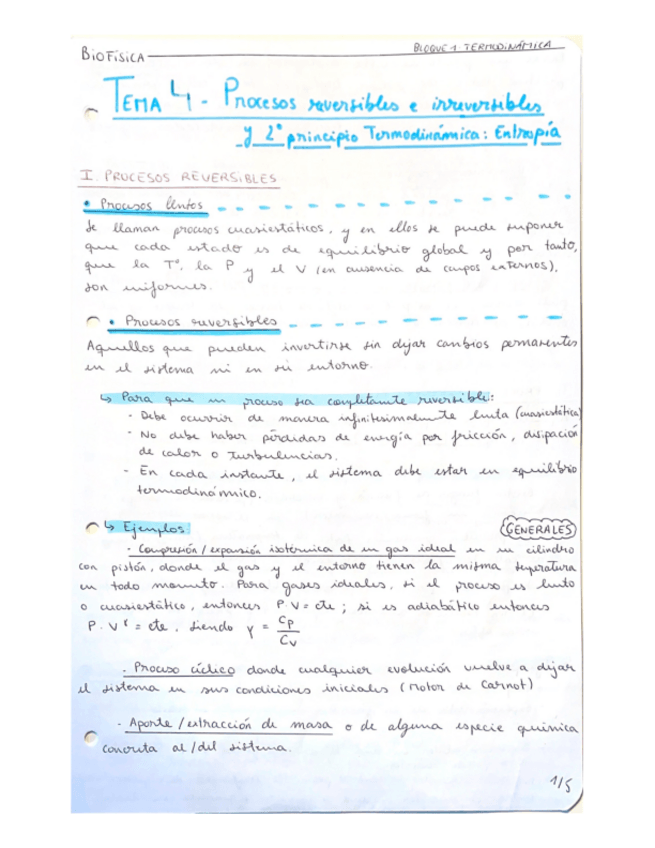 BIOFÍSICA
BLOQUE 1: TERMODINÁMICA
TEMA 4 - Procesos reversibles e irreversibles
y 2º principio Termodinámica: Entropía
I. PROCESOS REVERSIBLES
• Procesos lentos
Se llaman procesos cuasiestáticos, y en ellos se puede suponer
que cada estado es de equilibrio global y por tanto,
que la Tª, la P y el V (en ausencia de campos externos),
son uniformes.
• Procesos reversibles
Aquellos que pueden invertirse sin dejar cambios permanentes
en el sistema ni en su entorno.
↳ Para que un proceso sea completamente reversible:
- Debe ocurrir de manera infinitesimalmente lenta (cuasiestática)
- No debe haber pérdidas de energía por fricción, disipación
de calor o turbulencias.
- En cada instante, el sistema debe estar en equilibrio
termodinámico.
↳ Ejemplos:
GENERALES
· Compresión/expansión isotérmica de un gas ideal en un cilindro
con pistón, donde el gas y el entorno tienen la misma temperatura
en todo momento. Para gases ideales, si el proceso es lento
o cuasiestático, entonces P·V = cte; si es adiabático entonces
P·V^γ = cte, siendo γ = Cp/Cv
· Proceso cíclico donde cualquier evolución vuelve a dejar
el sistema en sus condiciones iniciales (Motor de Carnot)
· Aporte/extracción de masa o de alguna especie química
concreta al/del sistema.
1/5